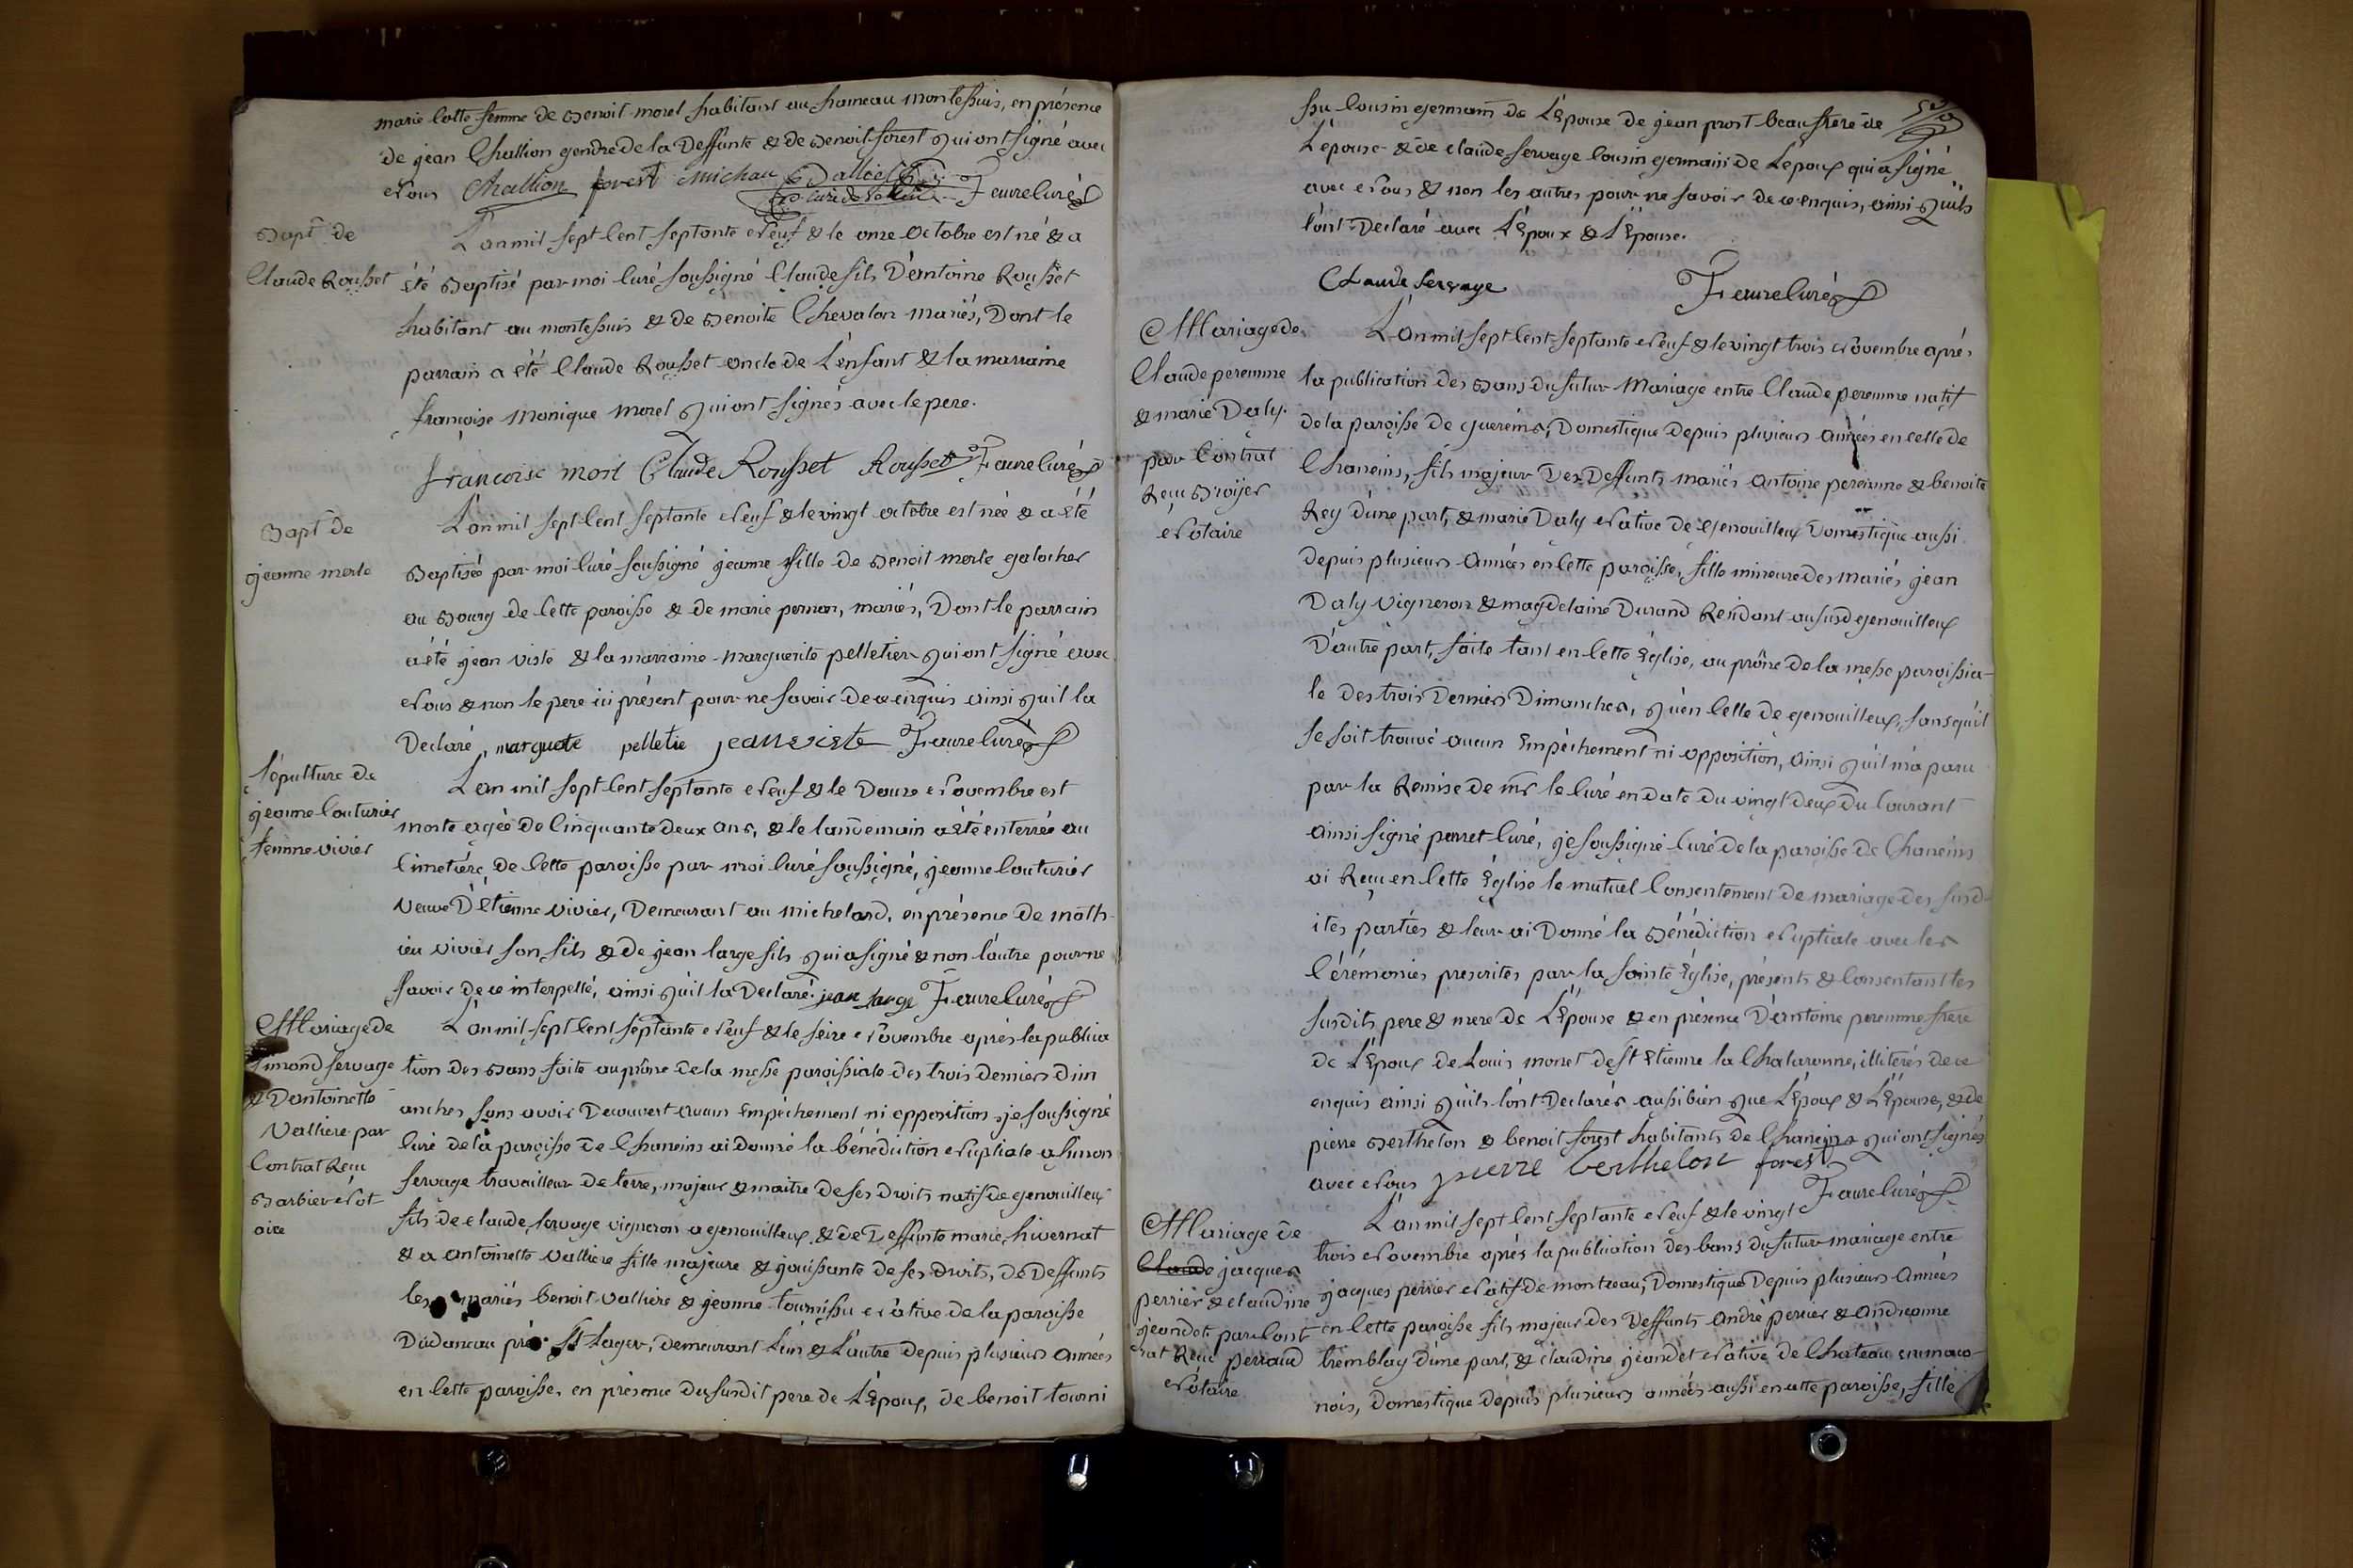 marie Cotte femme de Benoit morel habitant au hameau montessuis, en présence
de jean Challion gendre de la Deffunte & de Benoit forest Qui ont signé avec
Nous Challion forest michau Dallier Faure Curé
Bapt de
Claude Rousset
L'an mil sept Cent septante Neuf & le onze octobre est né & a
été Baptisé par moi Curé soussigné Claude fils D'antoine Rousset
habitant au montessuis & de Benoite Chevalon mariés, Dont le
parrain a été Claude Rousset oncle de L'enfant & la marraine
françoise Monique morel Qui ont signés avec le pere.
francoise morl Claude Rousset Rousset Faure Curé
Bapt de
jeanne merle
L'an mil sept Cent septante Neuf & le vingt octobre est née & a été
Baptisée par moi Curé soussigné jeanne fille de Benoit merle galocher
au Bourg de Cette paroisse & de marie pernon, mariés, Dont le parrain
a été jean viste & la marraine Marguerite pelletier Qui ont signé avec
Nous & non le pere ici présent pour ne savoir de ce enquis ainsi Quil la
Declaré, marguete pelletie jean viste Faure Curé
sépulture de
jeanne Couturier
femme vivier
L'an mil sept Cent septante Neuf & le Douze Novembre est
morte agée de Cinquante deux ans, & le landemain a été enterrée au
Cimetiére de Cette paroisse par moi Curé soussigné, jeanne Couturier
Veuve D'Etienne vivier, Demeurant au michelard, en présence de math-
ieu vivier son fils & de jean large fils Qui a signé & non l'autre pour ne
savoir de ce interpellé, ainsi Quil la Declaré. jean large Faure Curé
Mariage de
simond servage
& D'antoinette
Valliere par
Contrat Reçu
Barbier Not
aire
L'an mil sept Cent septante Neuf & le seize Novembre aprés la publica
tion des Bans faite au prône de la messe paroissiale des trois derniers dim
anches sans avoir Decouvert aucun Empêchement ni opposition, je soussigné
Curé de la paroisse de Chaneins ai donné la bénédiction Nuptiale a simon
servage travailleur de terre, majeur & maitre de ses droits natif de genouilleux
fils de claude servage vigneron a genouilleux & de Deffunte marie hivernat
& a antoinette valliere fille majeure & jouissante de ses droits, de Deffunts
les mariés benoit valliere & jeanne tournissu Nâtive de la paroisse
Dudareau prés St Lager, demeurant L'un & L'autre depuis plusieurs années
en Cette paroisse, en présence du susdit pere de L'Epoux, de benoit tourni
ssu Cousin germain de L'Epouse de jean prost beau frere de
L'epouse & de claude servage Cousin germain de L'epoux qui a signé
avec Nous & non les autres pour ne savoir de ce enquis, ainsi Quils
l'ont Declaré avec L'Epoux & L'Epouse.
Claude servage Faure Curé
Mariage de
Claude peremme
& marie Daly.
par Contrat
Reçu Broijer
Notaire
L'an mil sept Cent septante Neuf & le vingt trois Novembre aprés
la publication des Bans du futur Mariage entre Claude peremme natif
de la paroisse de guereins, Domestique depuis plusieurs années en celle de
Chaneins, fils majeur Des Deffunts mariés antoine peremme & benoite
Rey d'une part, & marie Daly Native de genouilleux Domestique aussi
depuis plusieurs années en Cette paroisse, fille mineure des mariés jean
Daly vigneron & magdelaine Durand Residant au susd genouilleux
D'autre part, faite tant en Cette Eglise, au prône de la messe paroissia-
le des trois Derniers Dimanches, Qu'en Celle de genouilleux, sans qu'il
se soit trouvé aucun Empêchement ni opposition, ainsi Qu'il m'a paru
par la Remise de mr le Curé en date du vingt deux du Courant
ainsi signé perret Curé, je soussigné Curé de la paroisse de Chaneins
ai Reçu en Cette Eglise le mutuel Consentement de mariage des susd-
ites parties & leur ai Donné la Bénédiction Nuptiale avec les
Cérémonies prescrites par la sainte Eglise, présents & Consentant les
susdits pere & mere de L'Epouse & en présence D'antoine peremme frere
de L'Epoux de Louis monet de St Etienne la Chalaronne, illiterés de ce
enquis ainsi Quils l'ont Declarés aussi bien que L'Epoux & L'Epouse, & de
pierre Berthelon & benoit forest habitants de Chaneins Qui ont signés
avec Nous pierre berthelon forest
Faure Curé
Mariage de
Claude jacques
perrier & claudine
jeandet. par Cont
rat Reçu perraud
Notaire
L'an mil sept Cent septante Neuf & le vingt
trois Novembre aprés la publication des bans du futur mariage entre
jacques perrier Natif de montceau, Domestique Depuis plusieurs Années
en Cette paroisse fils majeur des Deffunts André perrier & Andreanne
tremblay d'une part, & claudine jeandet Native de Chateau en maco-
nois, Domestique depuis plusieurs années aussi en cette paroisse, fille